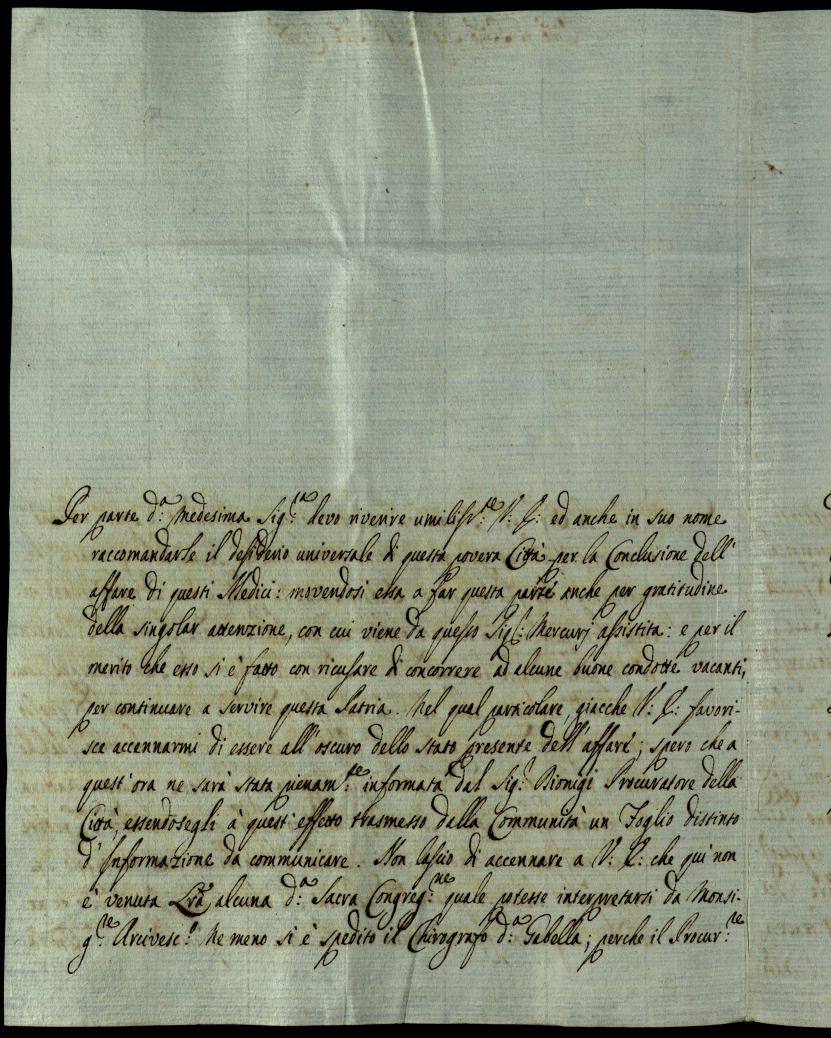 Per parte d.ª Medesima Sig.ra devo riverire umiliss.te V: S: ed anche in suo nome
raccomandarle il desiderio universale di questa povera Città per la Conclusione dell'
affare di questi Medici: movendosi essa a far questa parte anche per gratitudine
della singolar attenzione, con cui viene da questo Sig.r Mercurj assistita: e per il
merito che esso si è fatto con ricusare di concorrere ad alcune buone condotte vacanti,
per continuare a servire questa Patria. Nel qual particolare, giacche V: S: favori-
sce accennarmi di essere all'oscuro dello stato presente dell'affare; spero che a
quest'ora ne sarà stata pienam.te informata dal Sig.r Bionigi Procuratore della
Città, essendosegli à quest'effetto trasmesso dalla Communità un Foglio distinto
d'Informazione da communicare. Non lascio di accennare a V: S: che quì non
è venuta Lrã alcuna d.ª Sacra Congreg.ne quale potesse interpretarsi da Monsi-
g.re Arcivesc.º Ne meno si è spedito il Chirografo d.ª Gabella; perche il Procur.re